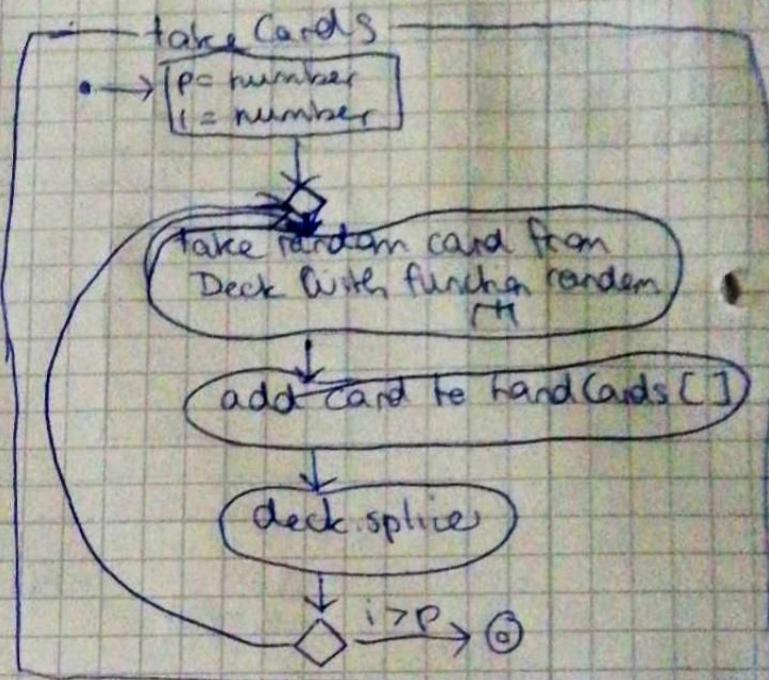 take Cards
p = number
i = number
take random card from
Deck with function random
add card to handCards []
deck.splice
i > p